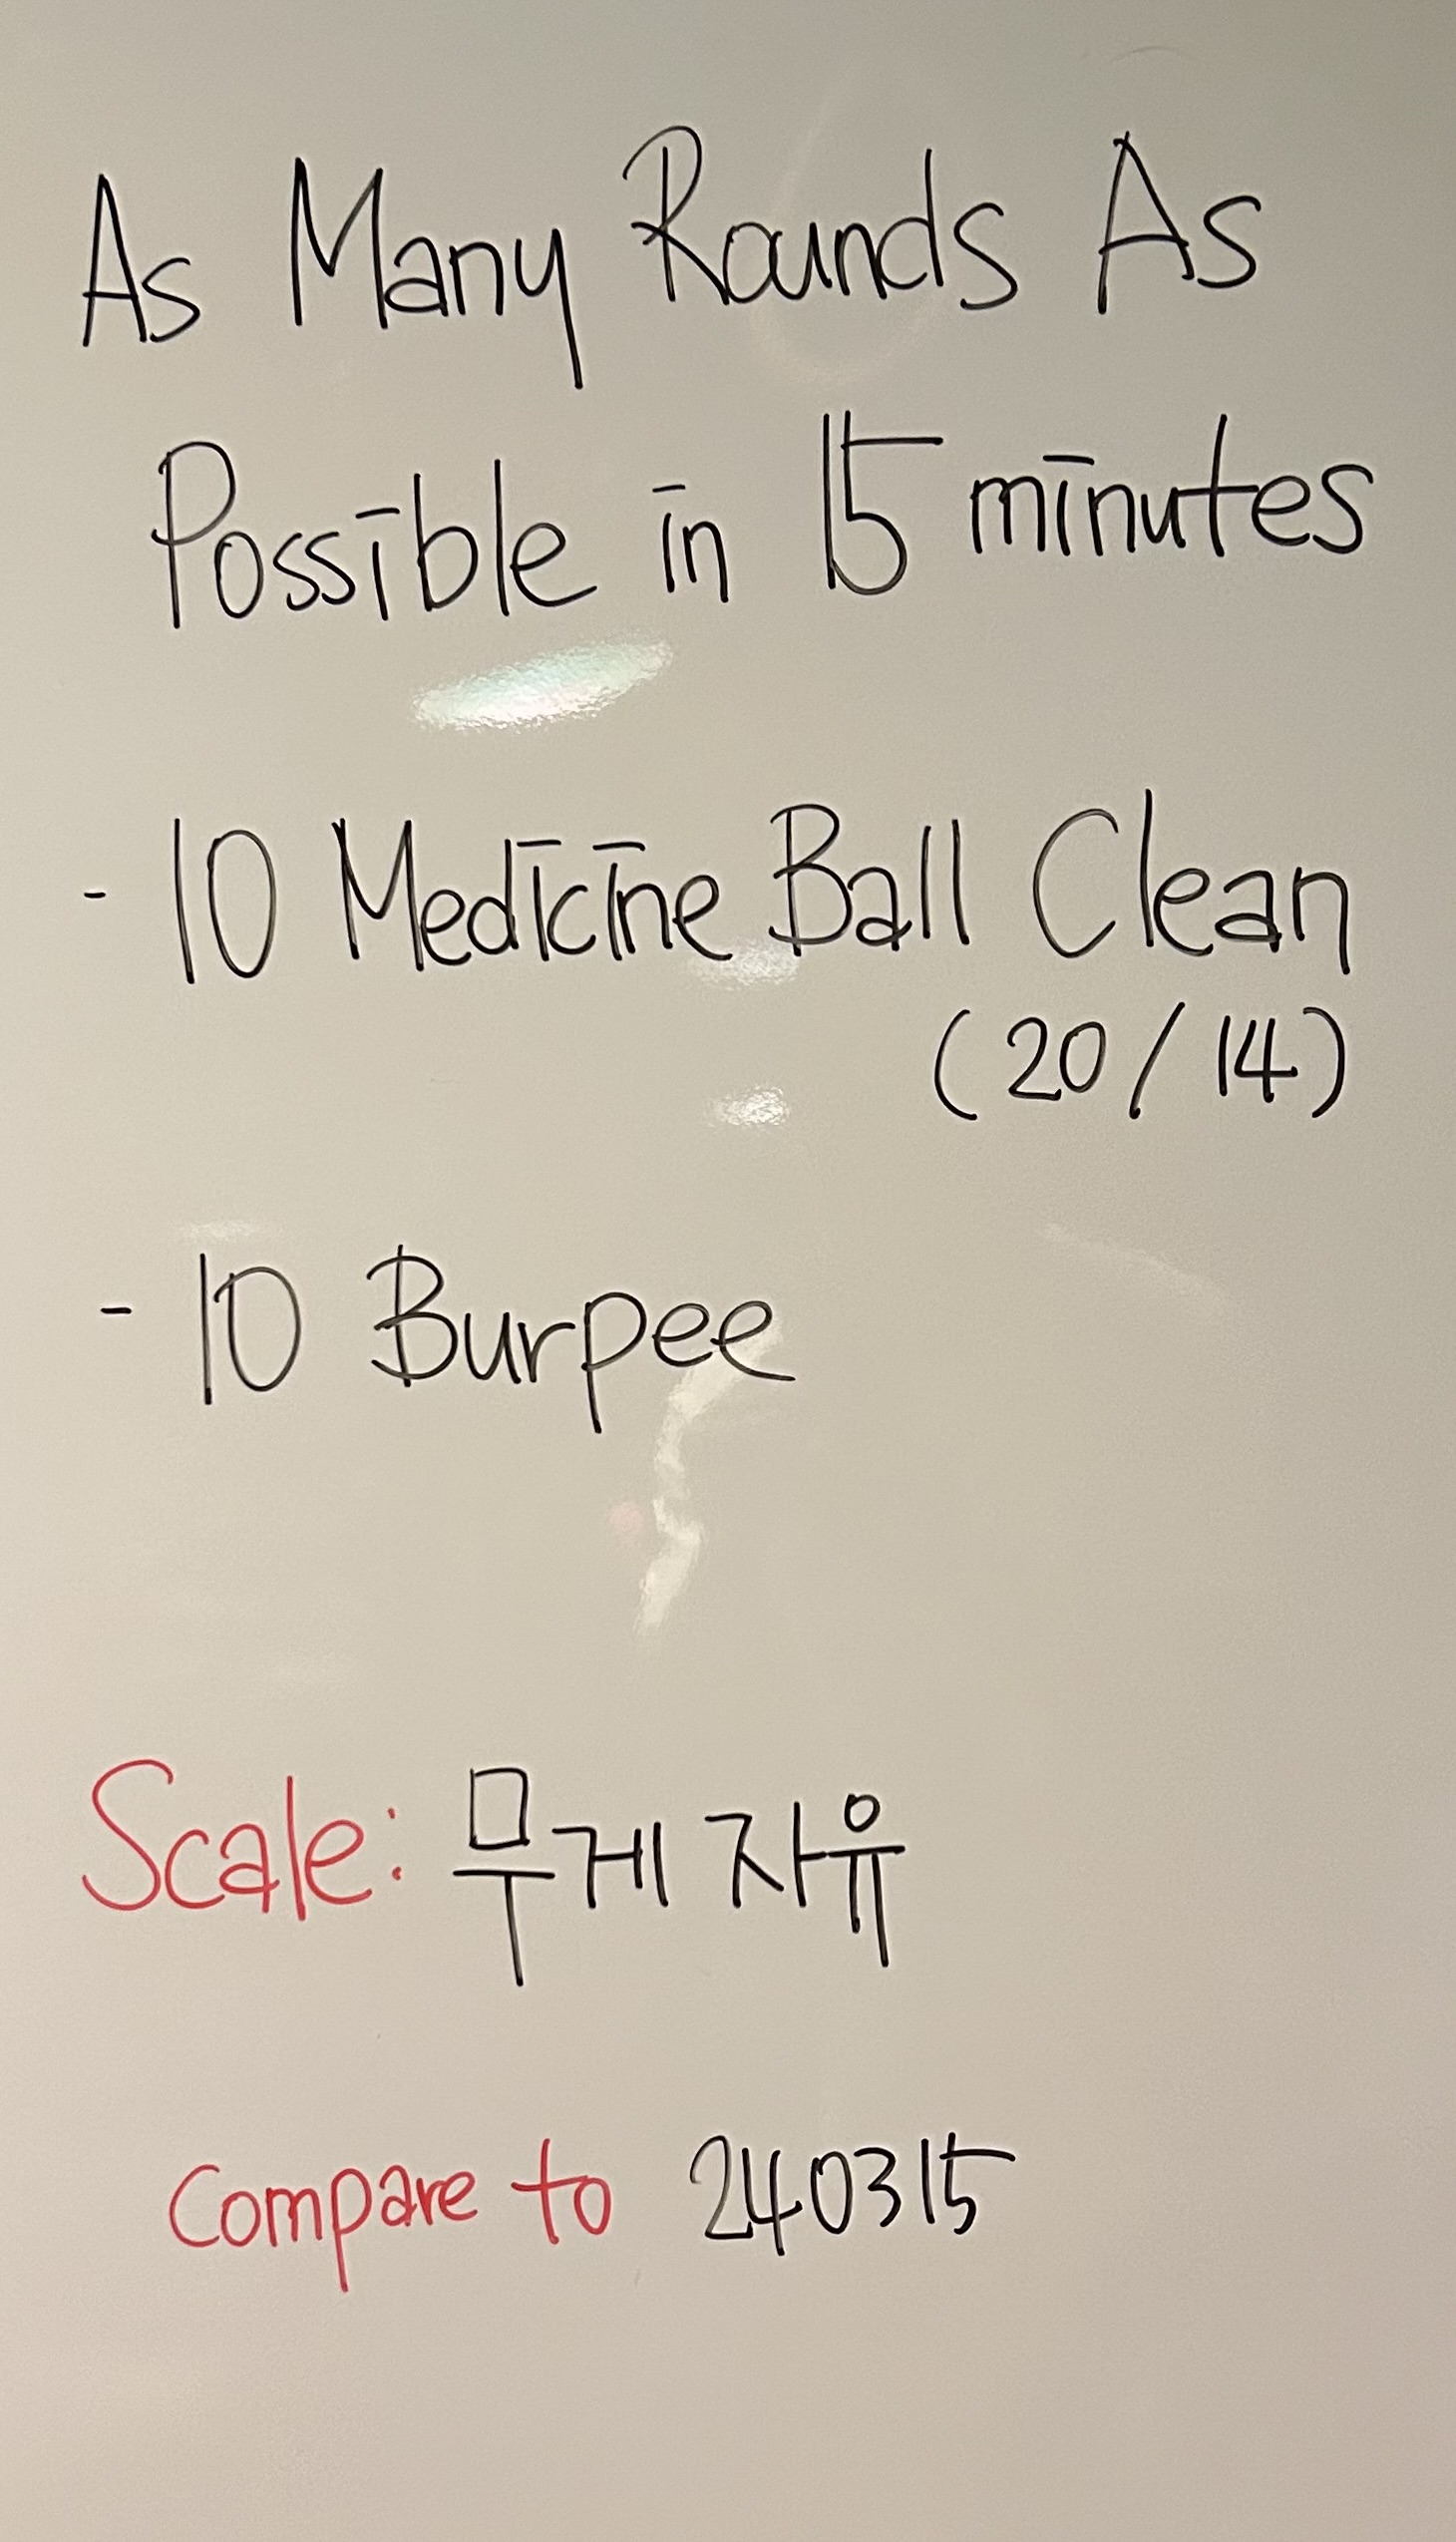 As Many Rounds As
Possible in 15 minutes
- 10 Medicine Ball Clean
(20/14)
- 10 Burpee
Scale: 무게 자유
Compare to 240315